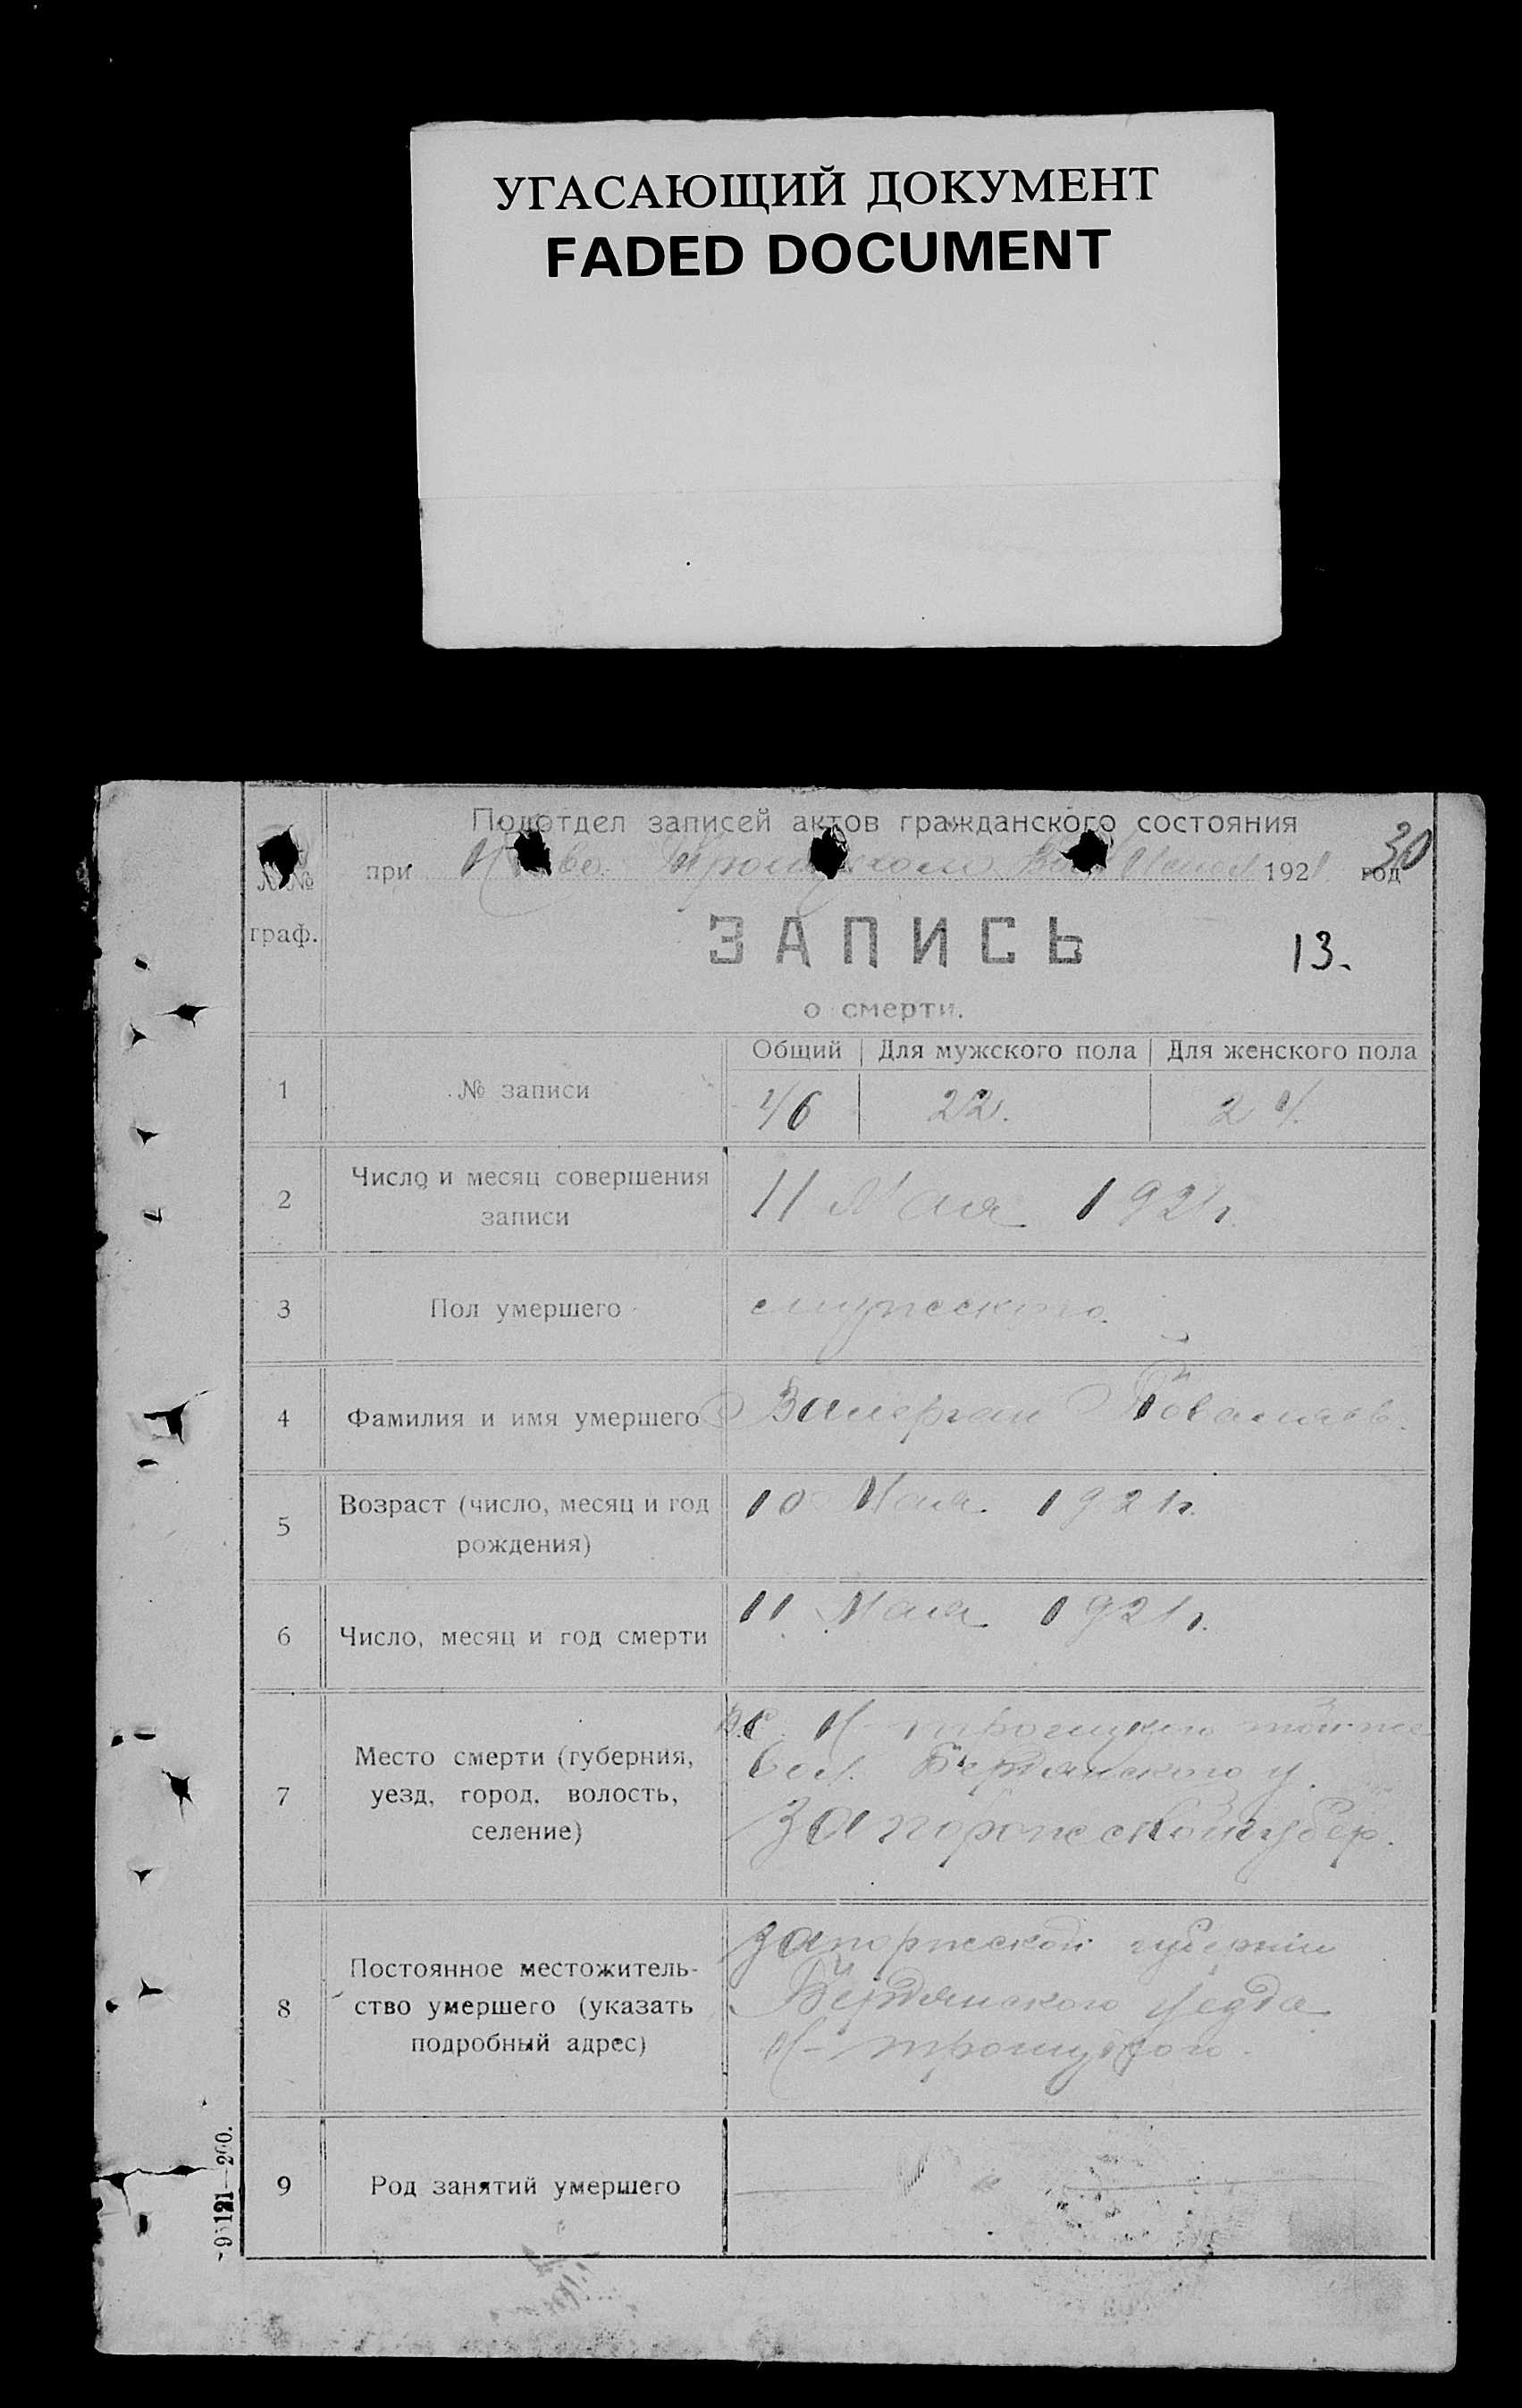 УГАСАЮЩИЙ ДОКУМЕНТ
FADED DOCUMENT
Подотдел записей актов гражданского состояния
30
№№ граф.
при 1921 год
ЗАПИСЬ
13.
о смерти.
Общий Для мужского пола Для женского пола
1 № записи 46 22. 24.
2 Число и месяц совершения
записи
11 Мая 1921 г.
3 Пол умершего мужеского.
4 Фамилия и имя умершего
5 Возраст (число, месяц и год
рождения)
10 Мая 1921 г.
6 Число, месяц и год смерти 11 Мая 1921 г.
7 Место смерти (губерния,
уезд, город, волость,
селение)
в с. Н-троицком той-же
вол. Бердянского у.
Запорожской губер.
8 Постоянное местожитель-
ство умершего (указать
подробный адрес)
Запорожской губернии
Бердянского уезда
Н-троицкого
9 Род занятий умершего